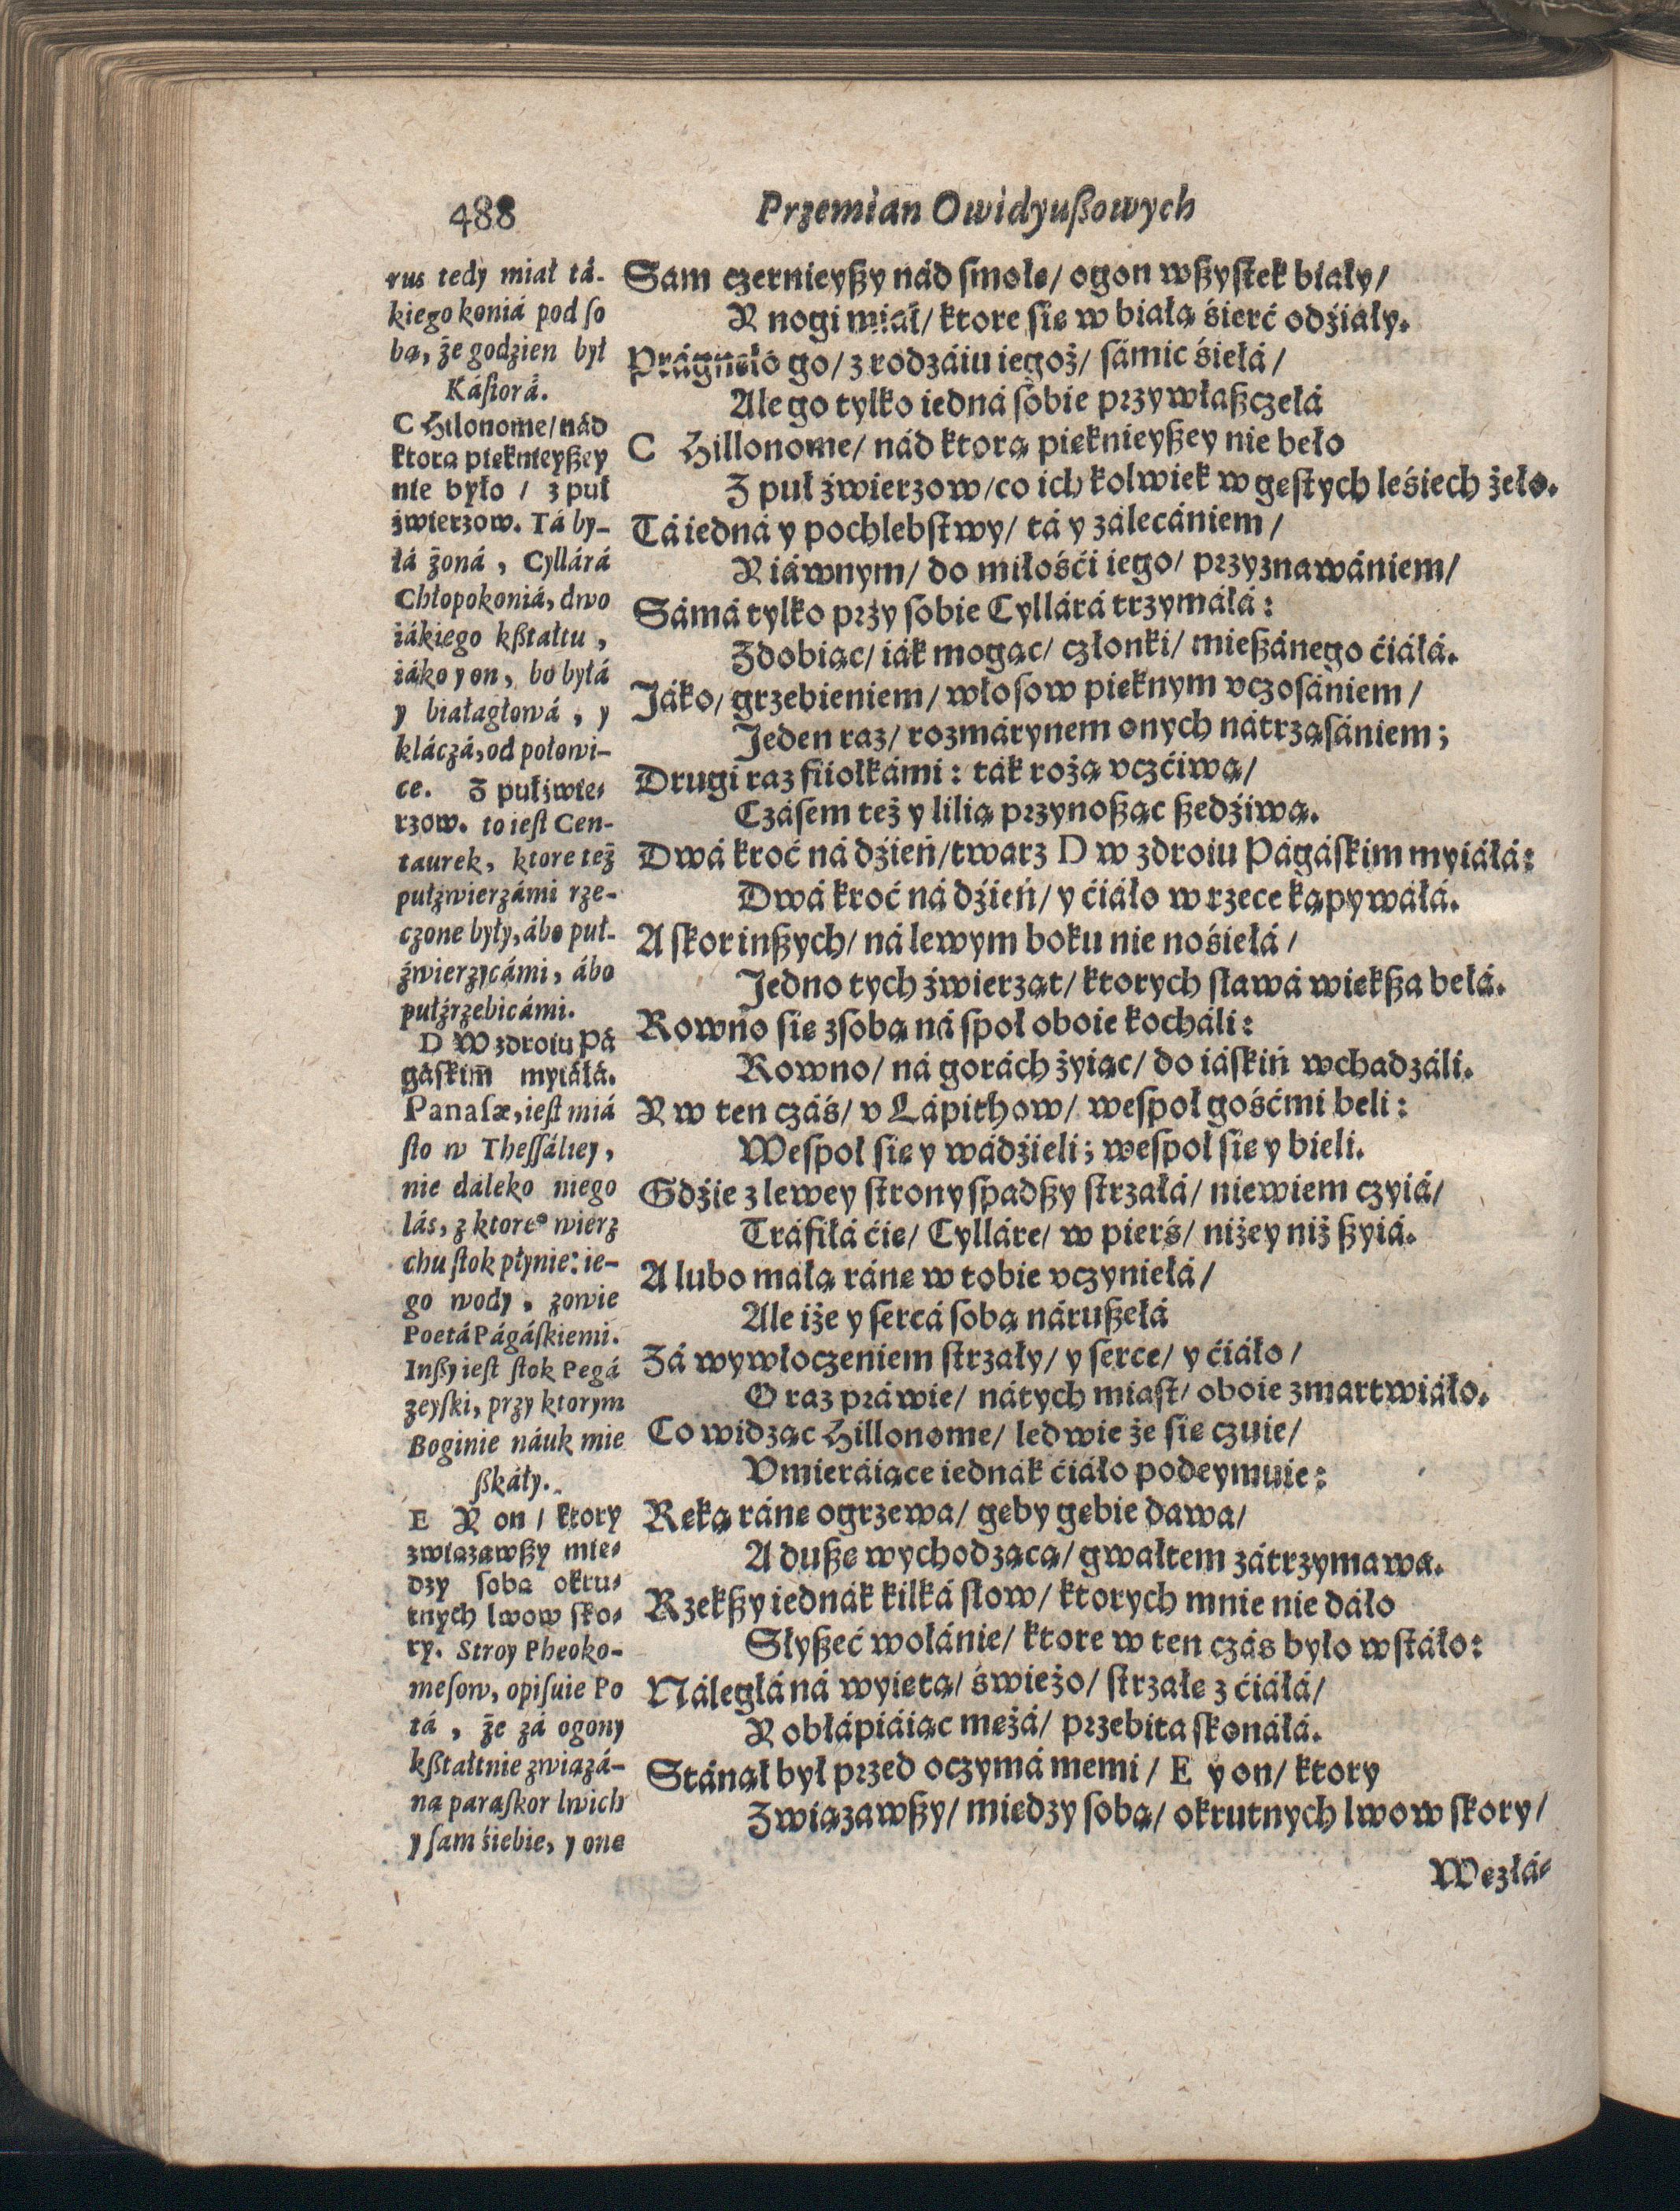 488
Przemian Owidyuſzowych
rus tedy miał tá-
kiego koniá pod ſo
bą, że godzien był
Káſtorá.
C Hilonome/ nád
ktorą pięknieyßey
nie było / z puł
źwierzow. Tá by-
łá żoná, Cyllárá
Chłopokoniá, dwo
iákiego kßtałtu,
iáko y on, bo byłá
y białagłowá, y
kláczá, od połowi-
ce. Z pułźwie-
rzow. to ieſt Cen-
taurek, ktore też
pułźwierzámi rze-
czone były, ábo puł-
źwierzycámi, ábo
pułźrzebicámi.
D W zdroiu Pá
gáſkim myiáłá.
Panaſæ, ieſt miá
ſto w Theſſáliey,
nie dáleko niego
lás, z ktoreº wierz
chu ſtok płynie: ie-
go wody, zowie
Poetá Págáſkiemi.
Inßy ieſt ſtok Pegá
zeyſki, przy ktorym
Boginie náuk mie
ßkáły.
E Y on / ktory
związawßy mię-
dzy ſobą okru-
tnych lwow ſko-
ry. Stroy Pheoko-
meſow, opiſuie Po
tá, że zá ogony
kßtałtnie związá-
ną parą ſkor lwich
y ſam śiebie, y one
Sam czernieyßy nád ſmołę/ ogon wßyſtek biały/
Y nogi miał/ ktore ſię w białą śierć odźiały.
Prágnęło go/ z rodzáiu iegoż/ ſámic śiełá/
Ale go tylko iedná ſobie przywłaßczełá
C Hillonome/ nád ktorą pięknieyßey nie beło
Z puł źwierzow/ co ich kolwiek w gęſtych leśiech żeło.
Tá iedná y pochlebſtwy/ tá y zálecániem/
Y iáwnym/ do miłośći iego/ przyznawániem/
Sámá tylko przy ſobie Cyllárá trzymáłá:
Zdobiąc/ iák mogąc/ członki/ mießánego ćiáłá.
Jáko/ grzebieniem/ włoſow pięknym vczoſániem/
Jeden raz/ rozmárynem onych nátrząſániem;
Drugi raz fiiołkámi: ták rożą vczćiwą/
Czáſem też y lilią przynoßąc ßedźiwą.
Dwá kroć ná dźień/ twarz D w zdroiu Págáſkim myiáłá:
Dwá kroć ná dźień/ y ćiáło w rzece kąpywáłá.
A ſkor inßych/ ná lewym boku nie nośiełá/
Jedno tych źwierząt/ ktorych ſławá więkßa bełá.
Rowno ſię z ſobą ná ſpoł oboie kocháli:
Rowno/ ná gorách żyiąc/ do iáſkiń wchadzáli.
Y w ten czás/ v Lápithow/ weſpoł gośćmi beli:
Weſpoł ſię y wádźieli; weſpoł ſię y bieli.
Gdźie z lewey ſtrony ſpadßy ſtrzałá/ niewiem czyiá/
Tráfiłá ćię/ Cylláre/ w pierś/ niżey niż ßyiá.
A lubo małą ránę w tobie vczyniełá/
Ale iże y ſercá ſobą nárußełá
Zá wywłoczeniem ſtrzały/ y ſerce/ y ćiáło/
O raz práwie/ nátych miaſt/ oboie zmartwiáło.
Co widząc Hillonome/ ledwie że ſię czuie/
Vmieráiące iednák ćiáło podeymuie:
Ręką ránę ogrzewa/ gęby gębie dawa/
A dußę wychodzącą/ gwałtem zátrzymawa.
Rzekßy iednák kilká ſłow/ ktorych mnie nie dáło
Słyßeć wołánie/ ktore w ten czás było wſtáło:
Náległá ná wyiętą/ świeżo/ ſtrzałę z ćiáłá/
Y obłápiáiąc mężá/ przebita ſkonáłá.
Stánął był przed oczymá memi/ E y on/ ktory
Związawßy/ między ſobą/ okrutnych lwow ſkory/
Węzłá-